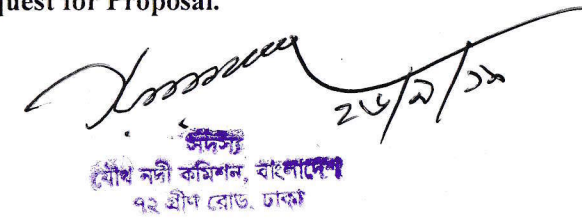 quest for Proposal.
২৬/৯/১৯
সদস্য
যৌথ নদী কমিশন, বাংলাদেশ
৭২ গ্রীণ রোড, ঢাকা